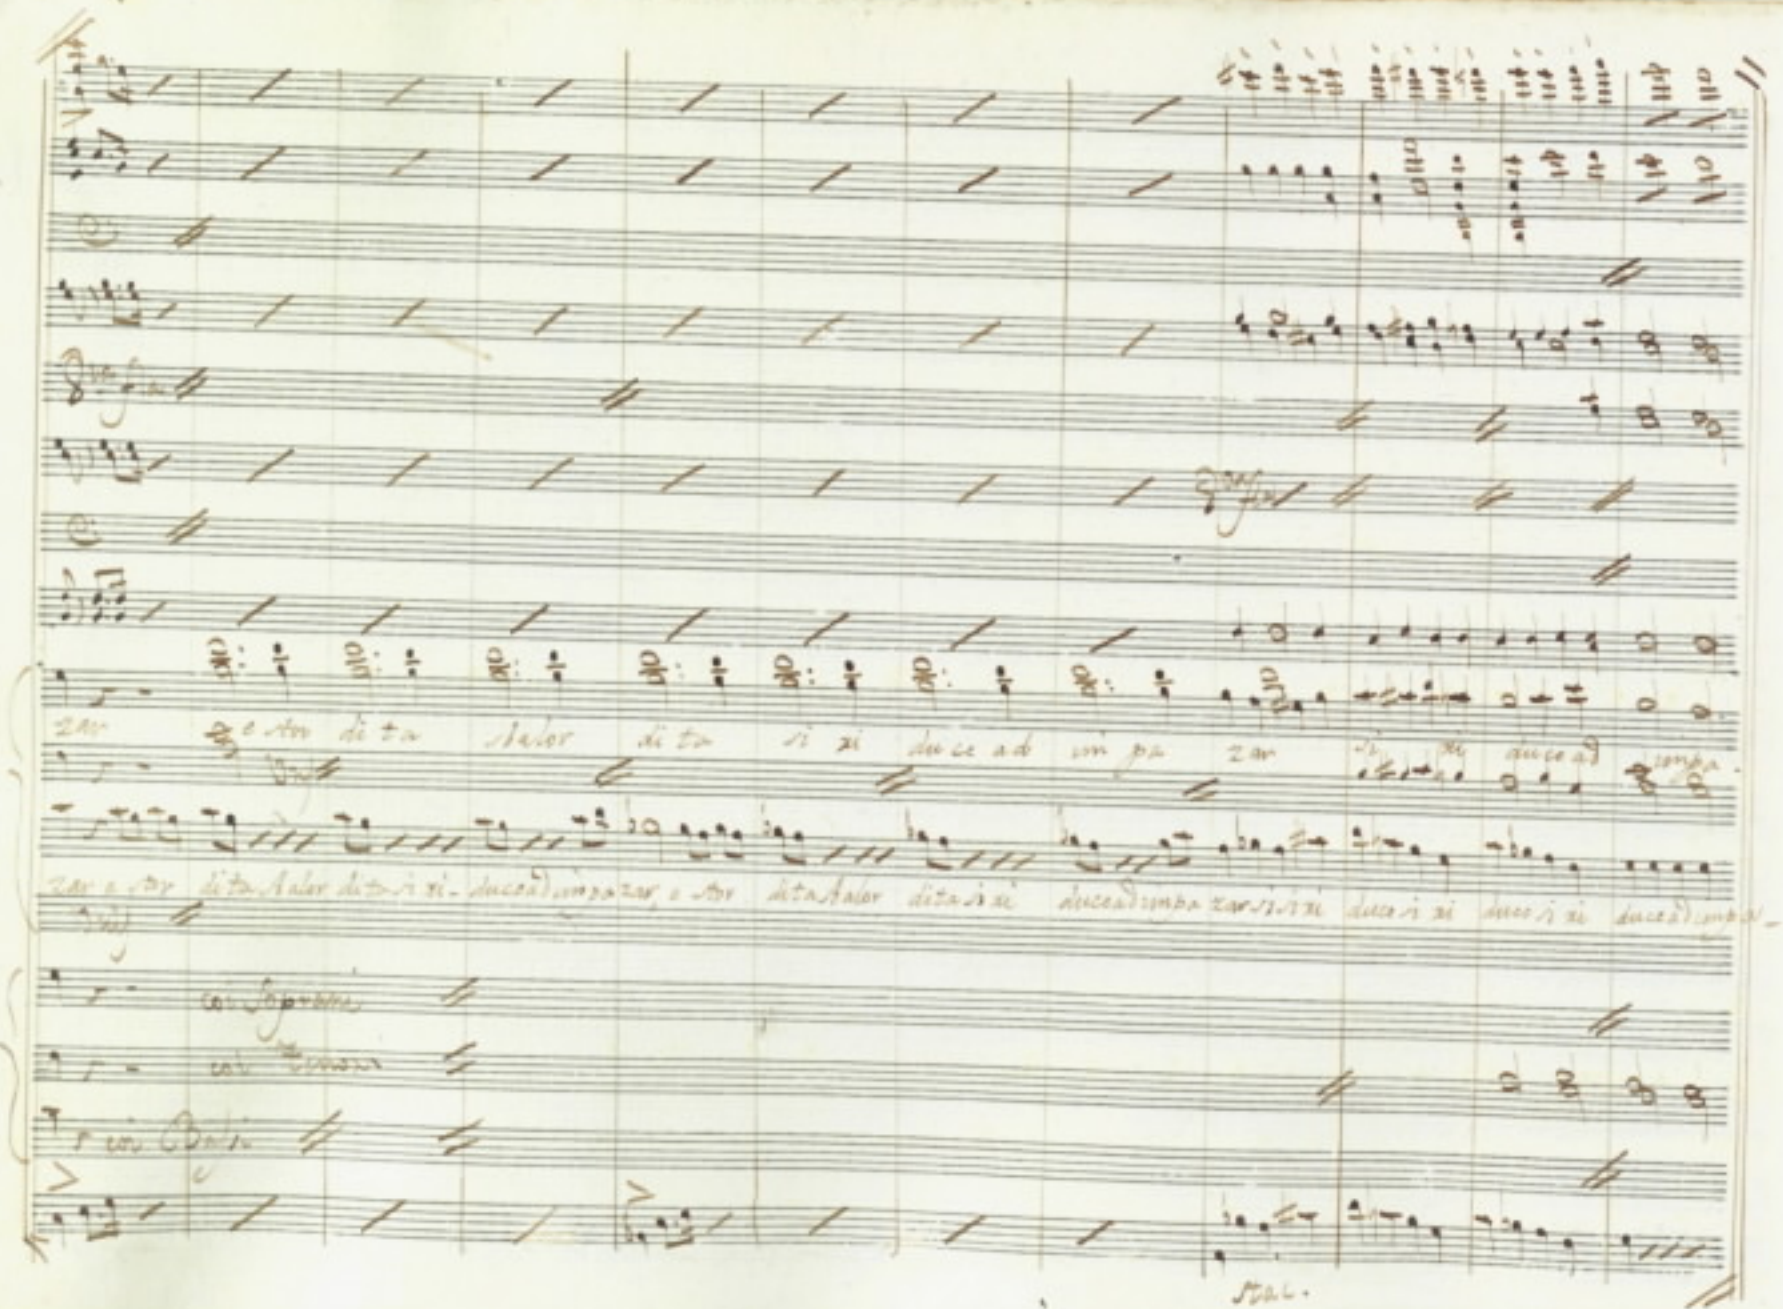 8va fla
8va fla
zar e stor di ta stalor di ta si ri duce ad im pa zar si ri duce ad impa
zar e stor dita stalor dita si ri- duce ad impazar, e stor dita stalor dita si ri duce ad impa zar si si ri duce si ri duce si ri duce ad impa-
coi Soprani
coi Tenori
coi Bassi
stac.